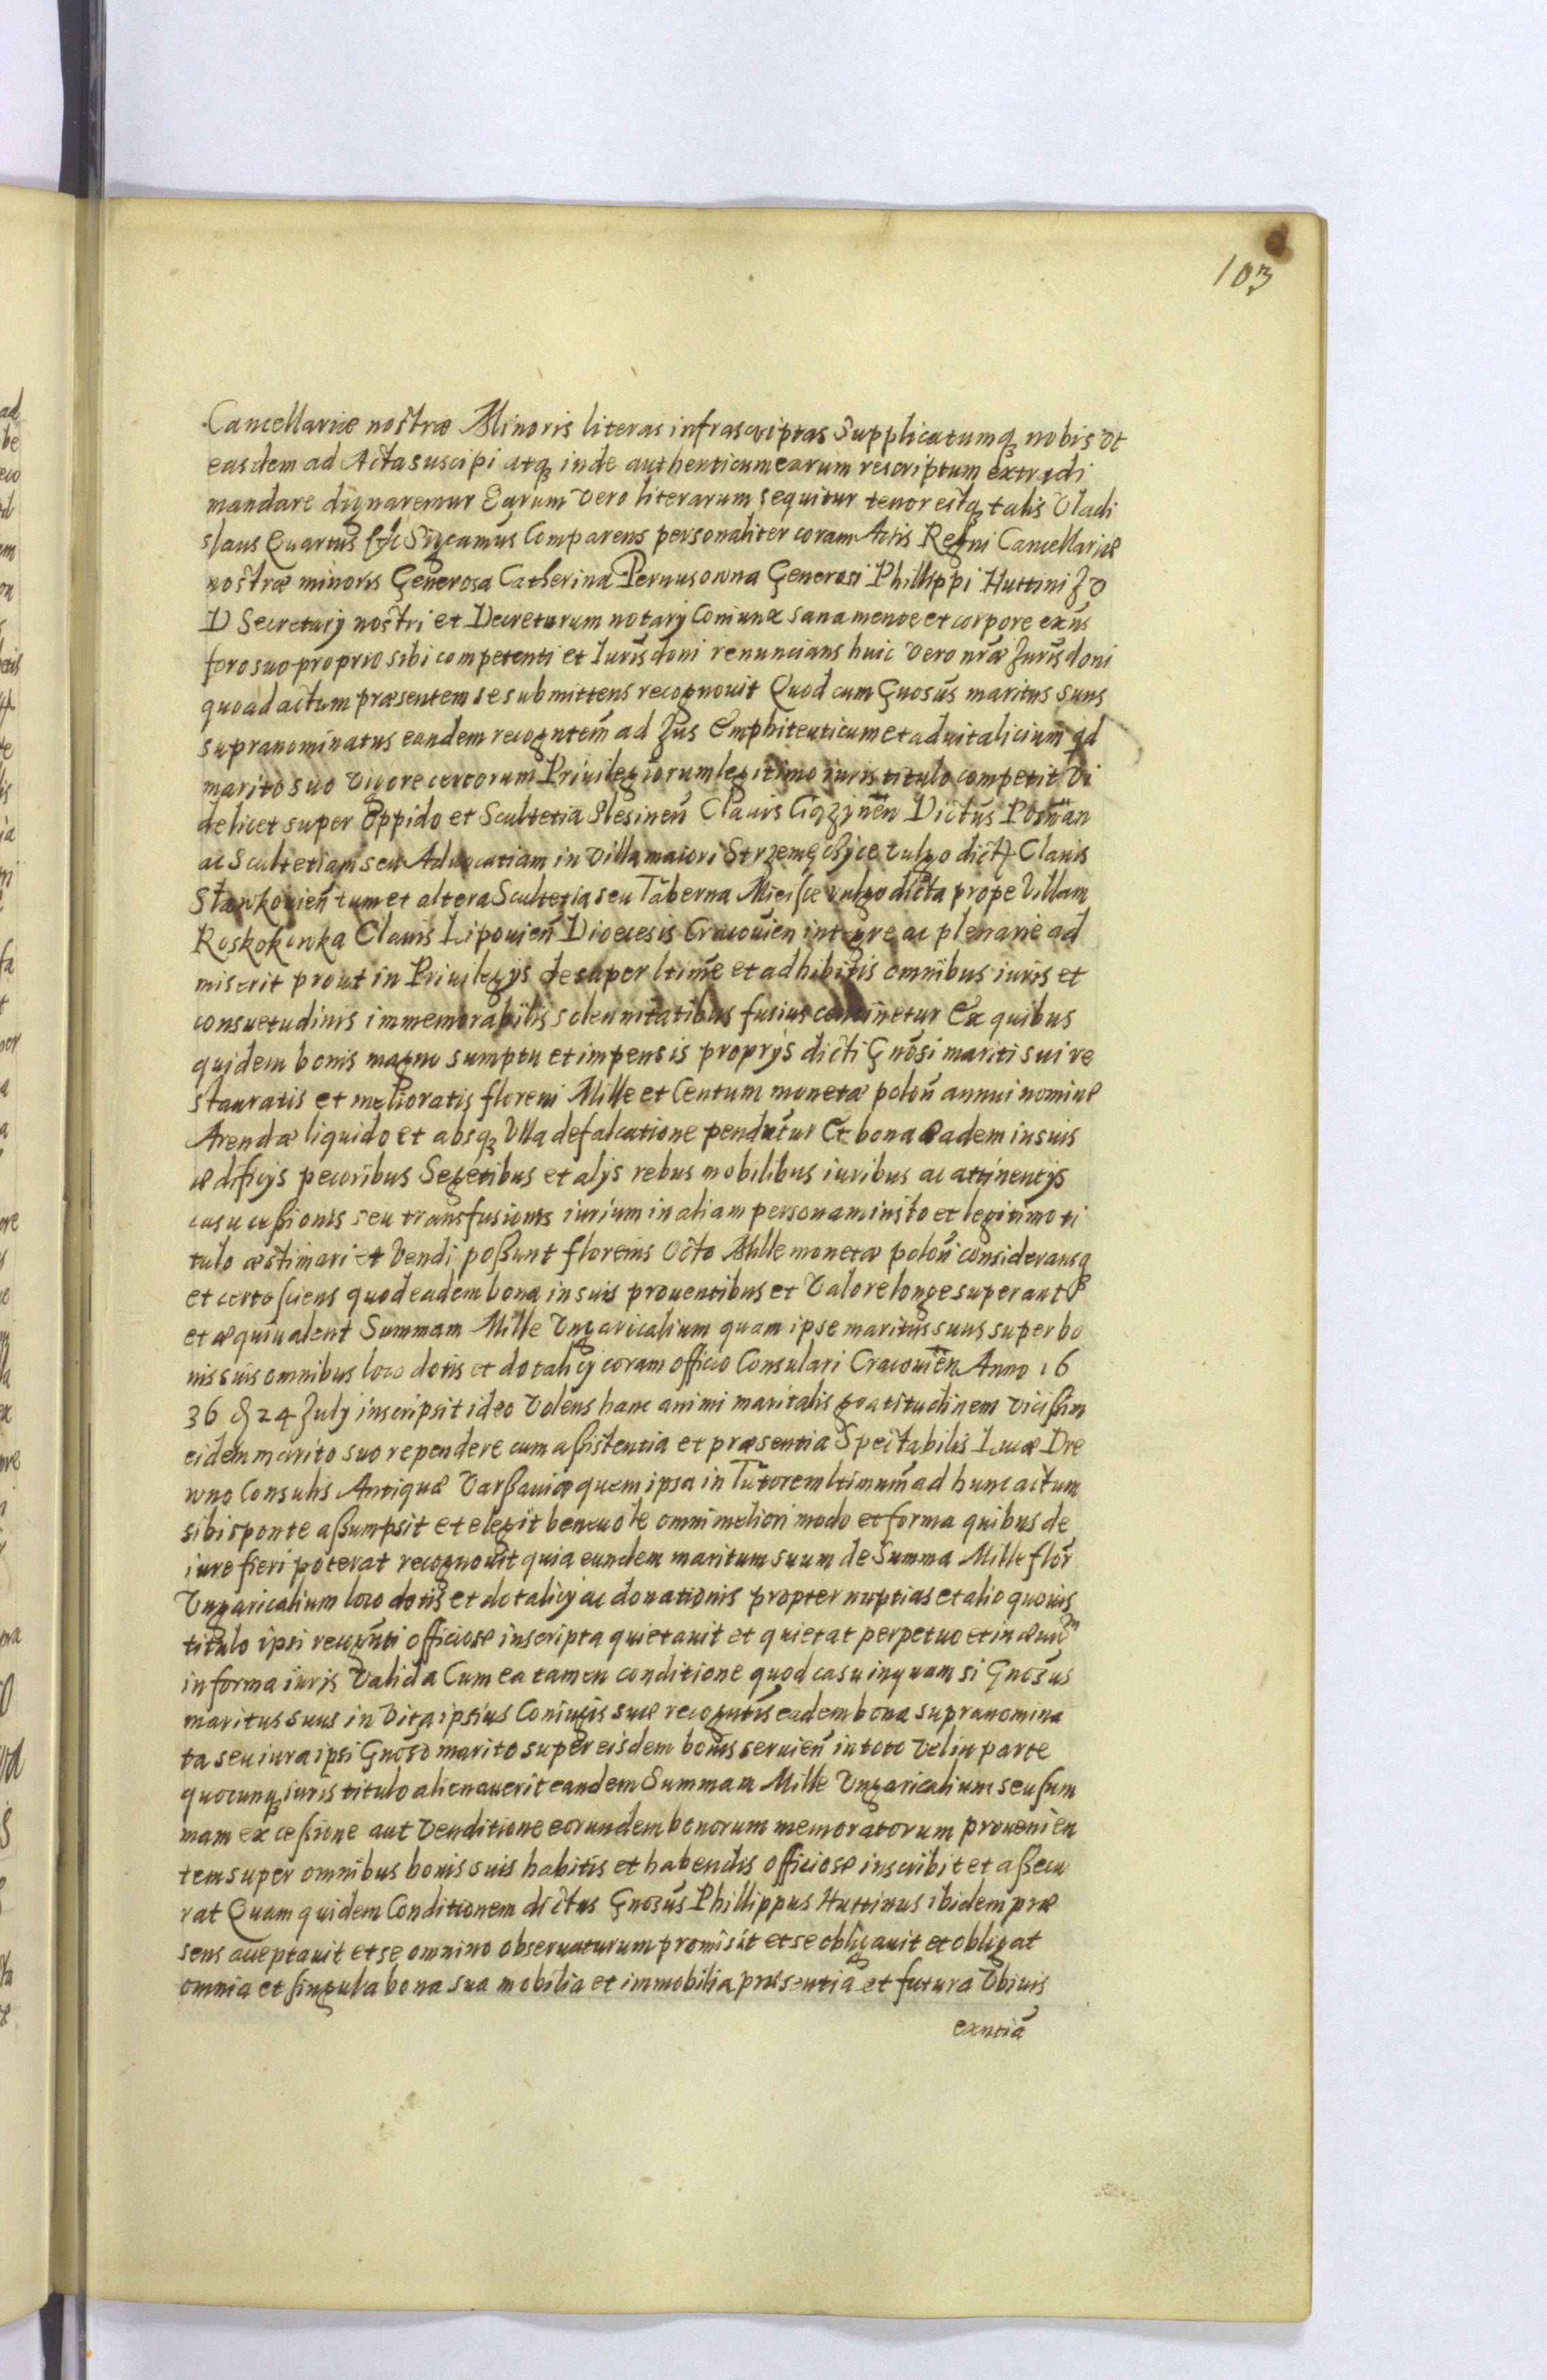 103
Cancellariæ nostræ Minoris literas infrascriptas Supplicatumq nobis vt
easdem ad Acta suscipi atq inde authenticum earum rescriptum extradi
mandare dignaremur Earum vero literarum sequitur tenor estq talis Vladi
slaus Quartus &c Sigcamus Comparens personaliter coram Actis Regni Cancellariæ
nostræ minoris Generosa Catherina Pernusowna Generosi Phillippi Huttini J V
D Secretarij nostri et Decretorum notarij Coniunx sana mente et corpore exñs
foro suo proprio sibi competenti et Iurisdoni renuncians huic vero nræ Jurisdoni
quo ad actum præsentem se submittens recognouit Quod cum Gnosus maritus suus
supranominatus eandem recogntem ad Jus Emphiteuticum et aduitalicium qd
marito suo vigore certorum Priuilegiorum legitimo iuris titulo competit Vi
delicet super Oppido et Scultetia Slesineñ Clauis Ciązyneñ Dictus Posnan
ac Scultetiam seu Aduocatiam in villa maiori Strzemęszyce vulgo dict Clauis
Sławkouieñ tum et altera Scultetia seu Taberna Mieisce vulgo dicta prope Villam
Roskokowka Clauis Lipouieñ Diœcesis Cracouien integre ac plenarie ad
miserit prout in Priuilegijs desuper ltime et adhibitis omnibus iuris et
consuetudinis immemorabilis solennitatibus fusius continetur Ex quibus
quidem bonis magno sumptu et impensis proprijs dicti Gnosi mariti sui re
stauratis et melioratis floreni Mille et Centum monetæ poloñ annui nomine
Arendæ liquido et absq Vlla defalcatione pendutur Et bona eadem in suis
ædificijs pecoribus Segetibus et alijs rebus mobilibus iuribus ac attinentijs
casu cessionis seu transfusionis iurium in aliam personam iusto et legitimo ti
tulo æstimari et Vendi possunt florenis Octo Mille monetæ poloñ consideransq
et certo sciens quod eadem bona in suis prouentibus et Valore longe superant
et æquiualent Summam Mille Vngaricalium quam ipse maritus suus super bo
nis suis omnibus loco dotis et dotalicij coram officio Consulari Cracouieñ Anno 16
36 d 24 July inscripsit ideo Volens hanc animi maritalis gratitudinem vicissim
eidem marito suo rependere cum assistentia et præsentia Spectabilis Lucæ Dre
wno Consulis Antiquæ Varssauiæ quem ipsa in Tutorem ltimum ad hunc actum
sibi sponte assumpsit et elegit beneuole omni meliori modo et forma quibus de
iure fieri poterat recognouit quia eundem maritum suum de Summa Mille flor
Vngaricalium loco dotis et dotalicij ac donationis propter nuptias et alio quouis
titulo ipsi recognti officiose inscripta quietauit et quietat perpetuo et in æuum
in forma iuris Valida Cum ea tamen conditione quod casu inquam si Gnosus
maritus suus in vita ipsius Coniugis suæ recogntis eadem bona supranomina
ta seu iura ipsi Gnoso marito super eisdem bonis seruieñ in toto vel in parte
quocunq iuris titulo alienauerit eandem Summam Mille Vngaricalium seu sum
mam ex cessione aut Venditione eorundem bonorum memoratorum prouenien
tem super omnibus bonis suis habitis et habendis officiose inscribit et assecu
rat Quam quidem Conditionem dictus Gnosus Phillippus Huttinus ibidem præ
sens acceptauit et se omnino obseruaturum promisit et se obligauit et obligat
omnia et singula bona sua mobilia et immobilia præsentia et futura Vbiuis
exntia